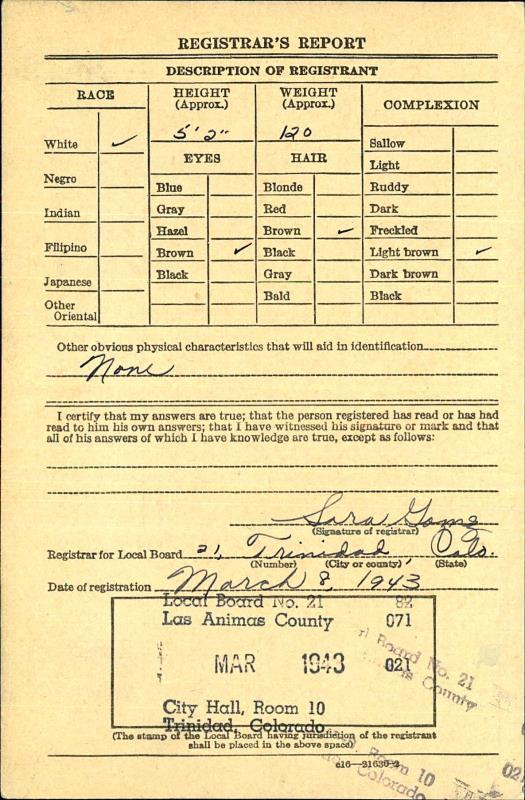 REGISTRAR'S REPORT
DESCRIPTION OF REGISTRANT
RACE
HEIGHT (Approx.)
WEIGHT (Approx.)
COMPLEXION
5' 2"
120
White ✓
Negro
Indian
Filipino
Japanese
Other Oriental
EYES
Blue
Gray
Hazel
Brown ✓
Black
HAIR
Blonde
Red
Brown ✓
Black
Gray
Bald
Sallow
Light
Ruddy
Dark
Freckled
Light brown ✓
Dark brown
Black
Other obvious physical characteristics that will aid in identification
None
I certify that my answers are true; that the person registered has read or has had
read to him his own answers; that I have witnessed his signature or mark and that
all of his answers of which I have knowledge are true, except as follows:
Sara
(Signature of registrar)
Registrar for Local Board 21, Trinidad, Colo.
(Number) (City or county) (State)
Date of registration March 8, 1943
Local Board No. 21 82
Las Animas County 071
MAR 1943 021
City Hall, Room 10
Trinidad, Colorado
(The stamp of the Local Board having jurisdiction of the registrant
shall be placed in the above space)
Board No. 21
County
Room 10
Colorado